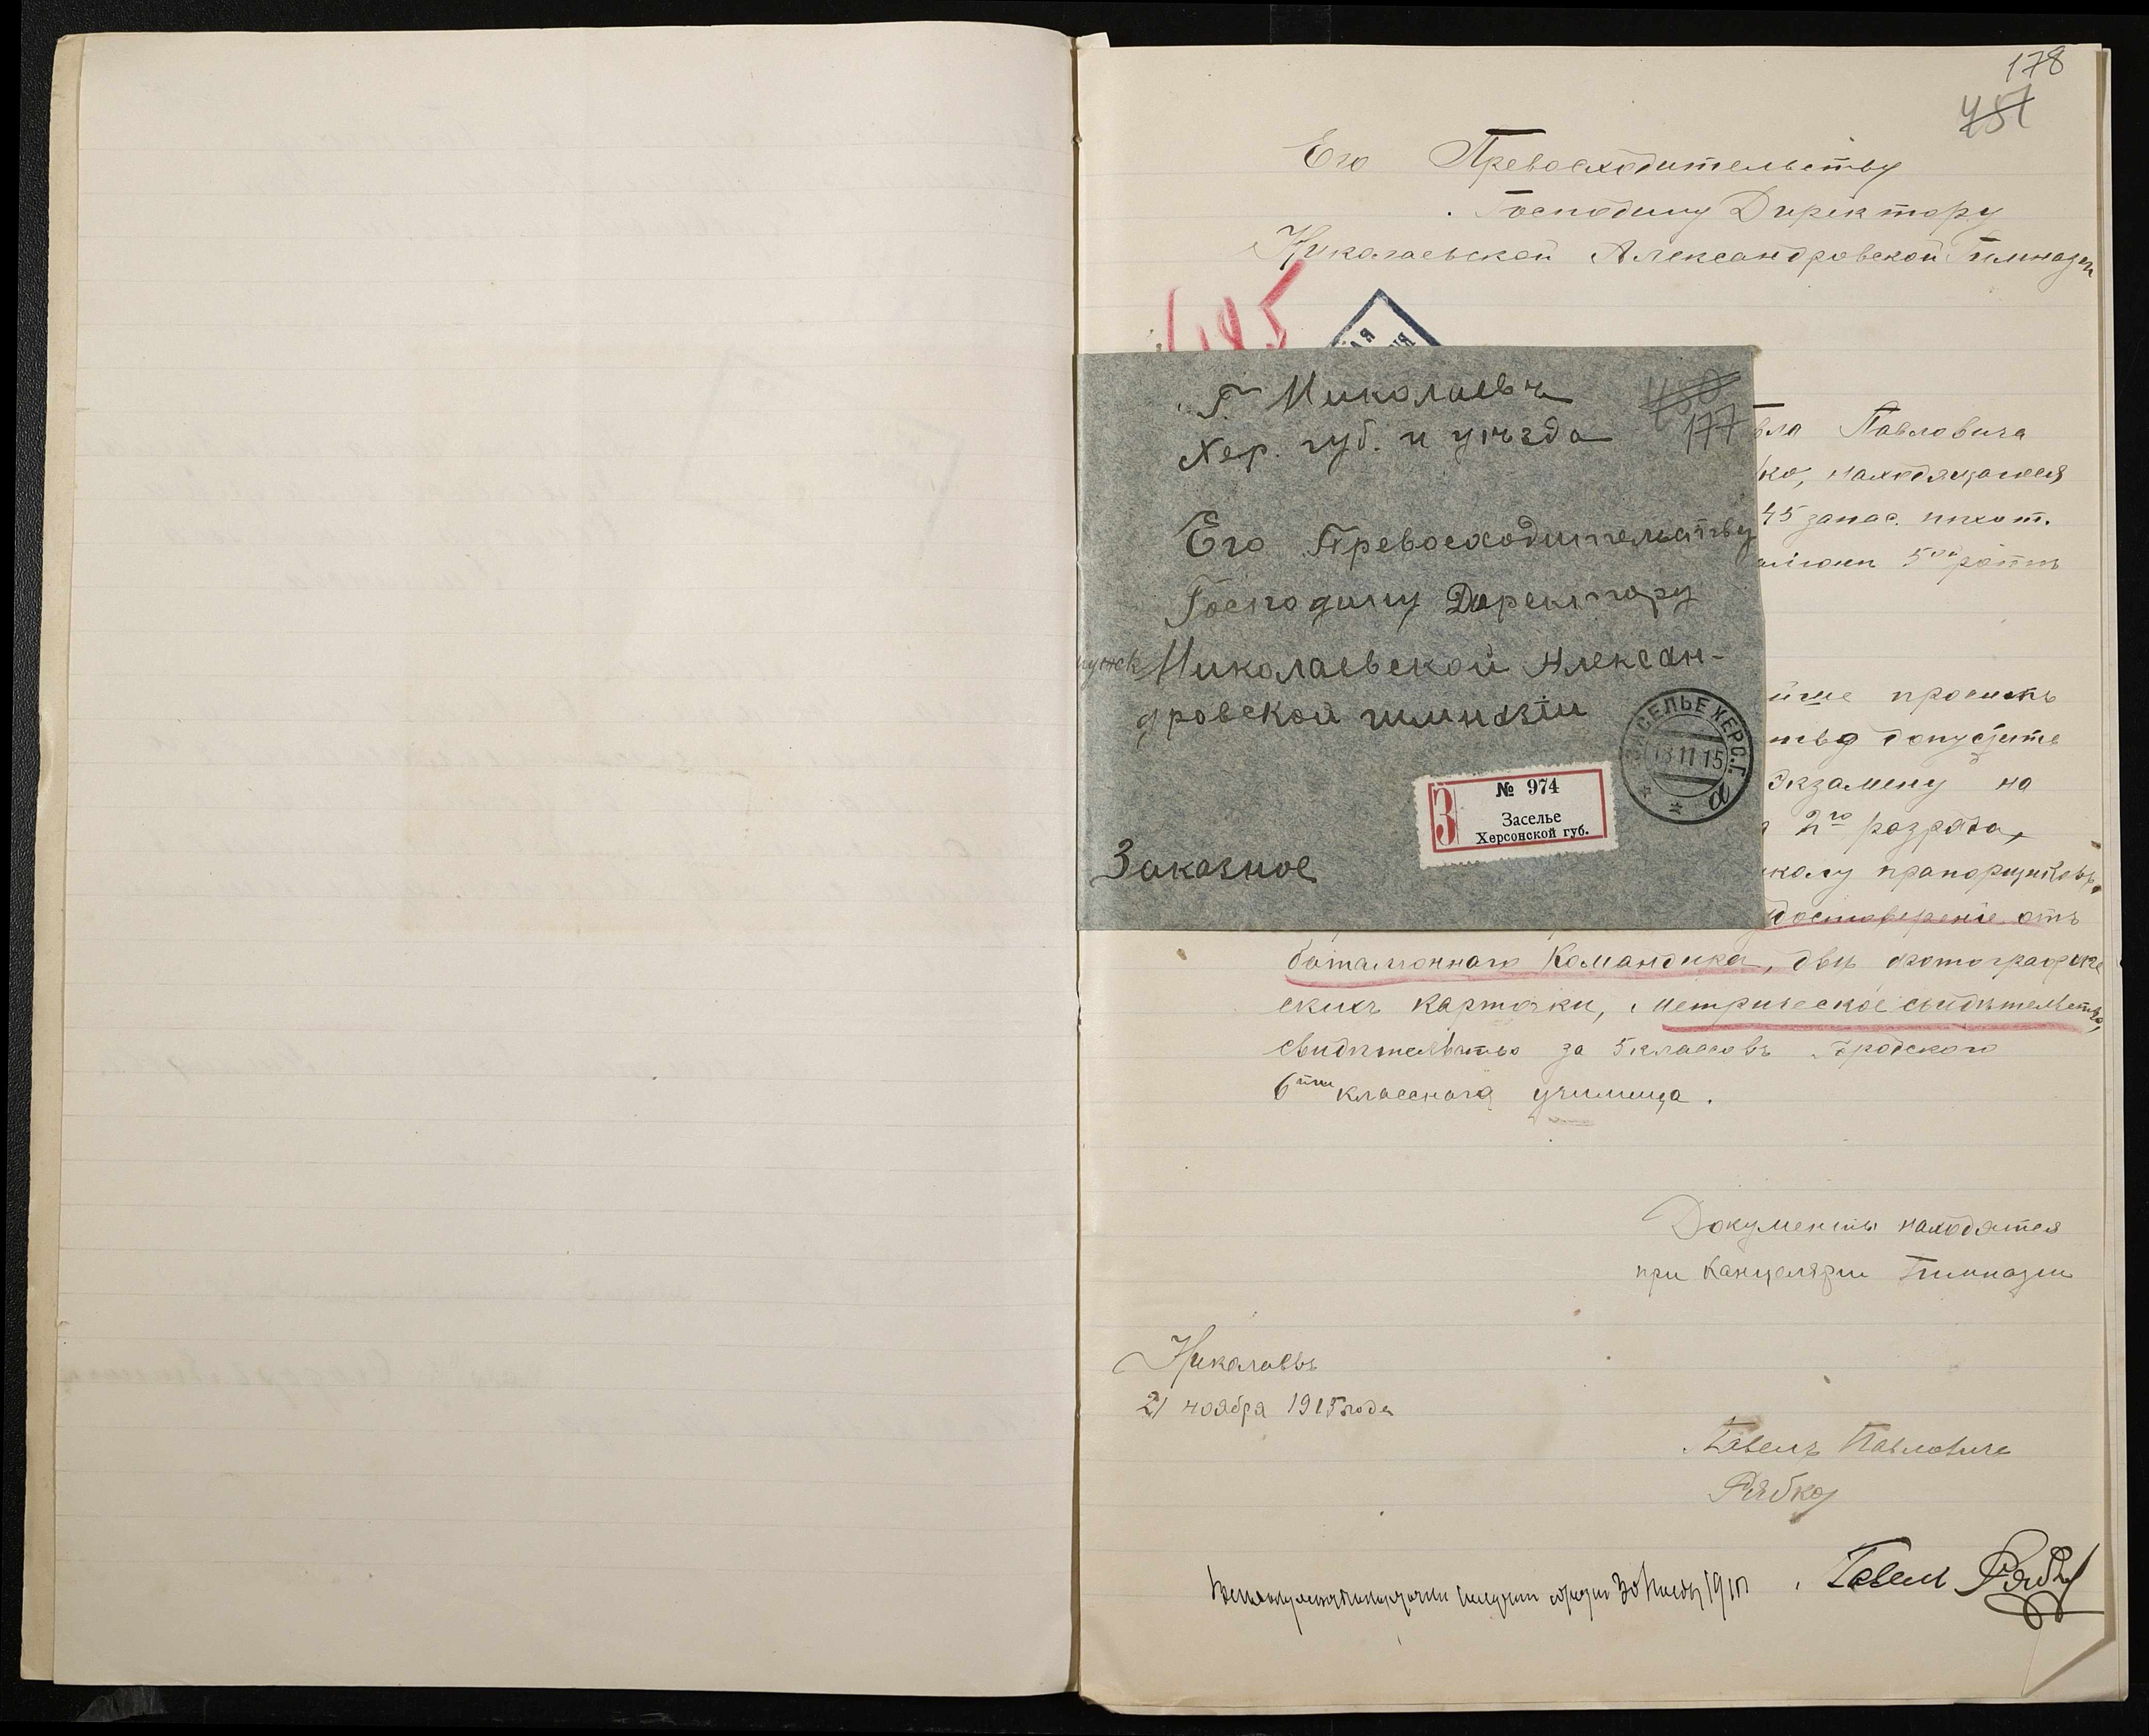 178
451
Его Превосходительству
Господину Директору
Николаевской Александровской Гимназіи
Г. Николаевъ
480
Хер. губ. и уѣзда
177
Его Превосходительству
Господину Директору
Николаевской Алексан-
дровской гимназіи
ЗАСЕЛЬЕ ХЕРС.Г.
13 11 15
а
З
№ 974
Заселье
Херсонской губ.
Заказное
вла Павловича
ко, находящагося
45 запас. пѣхот.
аліона 5ой ротѣ
йше просить
тво допустите
экзамену на
2го разряда,
колу прапорщиковъ.
удостоверение отъ
баталионнаго Командика, двѣ фотографиче
скихъ карточки, метрическое свидѣтельство,
свидѣтельство за 5 классовъ Городского
6ти классного училища.
Документы находятся
при Канцелярии Гимназии
Николаевъ
21 ноября 1915 года
Павелъ Павловичъ
Рябко
Павел Рябко